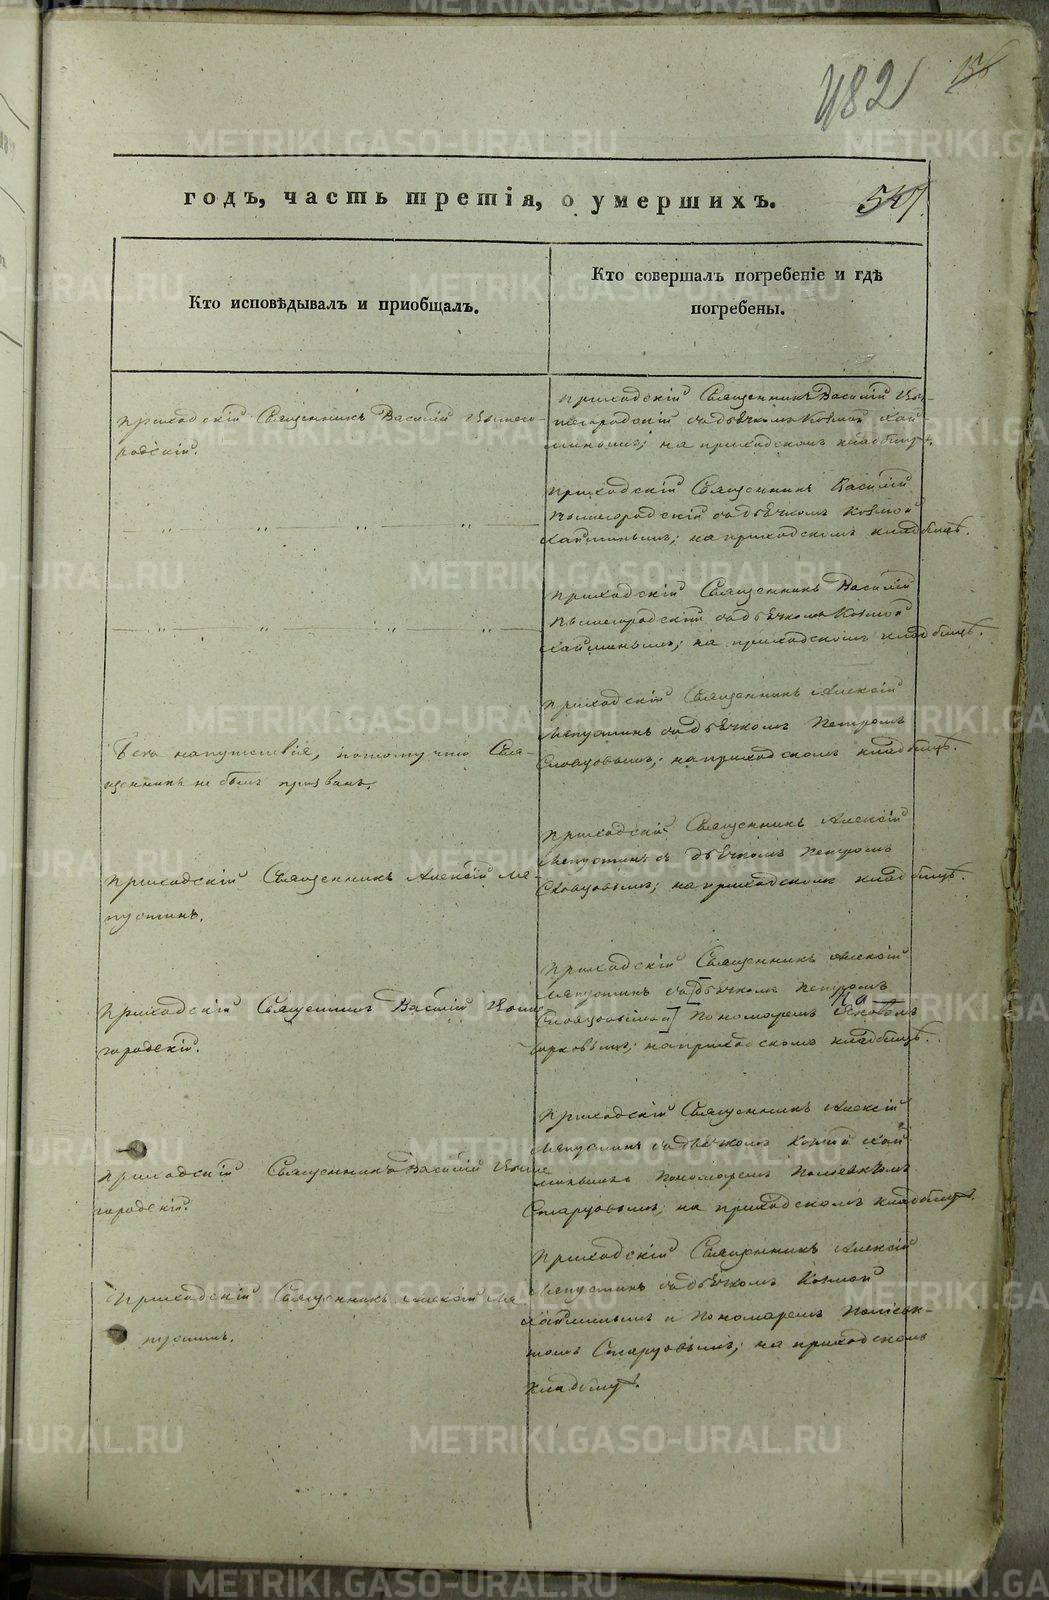 482
156
годъ, часть третія, о умершихъ.
547.
Кто исповѣдывалъ и приобщалъ.
Кто совершалъ погребеніе и гдѣ
погребены.
Приходскій Священникъ Василій Вышего-
родскій.
Приходскій Священникъ Василій Вы-
шегородскій съ дьячкомъ Козмой
на приходскомъ кладбищѣ.
Приходскій Священникъ Василій
Вышегородскій съ дьячкомъ Козмой
на приходскомъ кладбищѣ.
Приходскій Священникъ Василій
Вышегородскій съ дьячкомъ Козмой
на приходскомъ кладбищѣ.
Безъ напутствія, потому что Свя-
щенникъ не былъ призванъ.
Приходскій Священникъ Алексій
Ляпустинъ съ дьячкомъ Петромъ
Словцовымъ; на приходскомъ кладбищѣ.
Приходскій Священникъ Алексій Ля-
пустинъ.
Приходскій Священникъ Алексій
Ляпустинъ съ дьячкомъ Петромъ
Словцовымъ; на приходскомъ кладбищѣ.
Приходскій Священникъ Василій Выше
городскій.
Приходскій Священникъ Алексій
Ляпустинъ съ [дьячкомъ Петромъ
Словцовымъ и] Пономаремъ
на приходскомъ кладбищѣ.
Приходскій Священникъ Василій Выше
городскій.
Приходскій Священникъ Алексій
Ляпустинъ съ дьячкомъ Козмой
Пономаремъ
Старцовымъ; на приходскомъ кладбищѣ.
Приходскій Священникъ Алексій Ля
пустинъ.
Приходскій Священникъ Алексій
Ляпустинъ съ дьячкомъ Козмой
и Пономаремъ
Старцовымъ; на приходскомъ
кладбищѣ.
METRIKI.GASO-URAL.RU